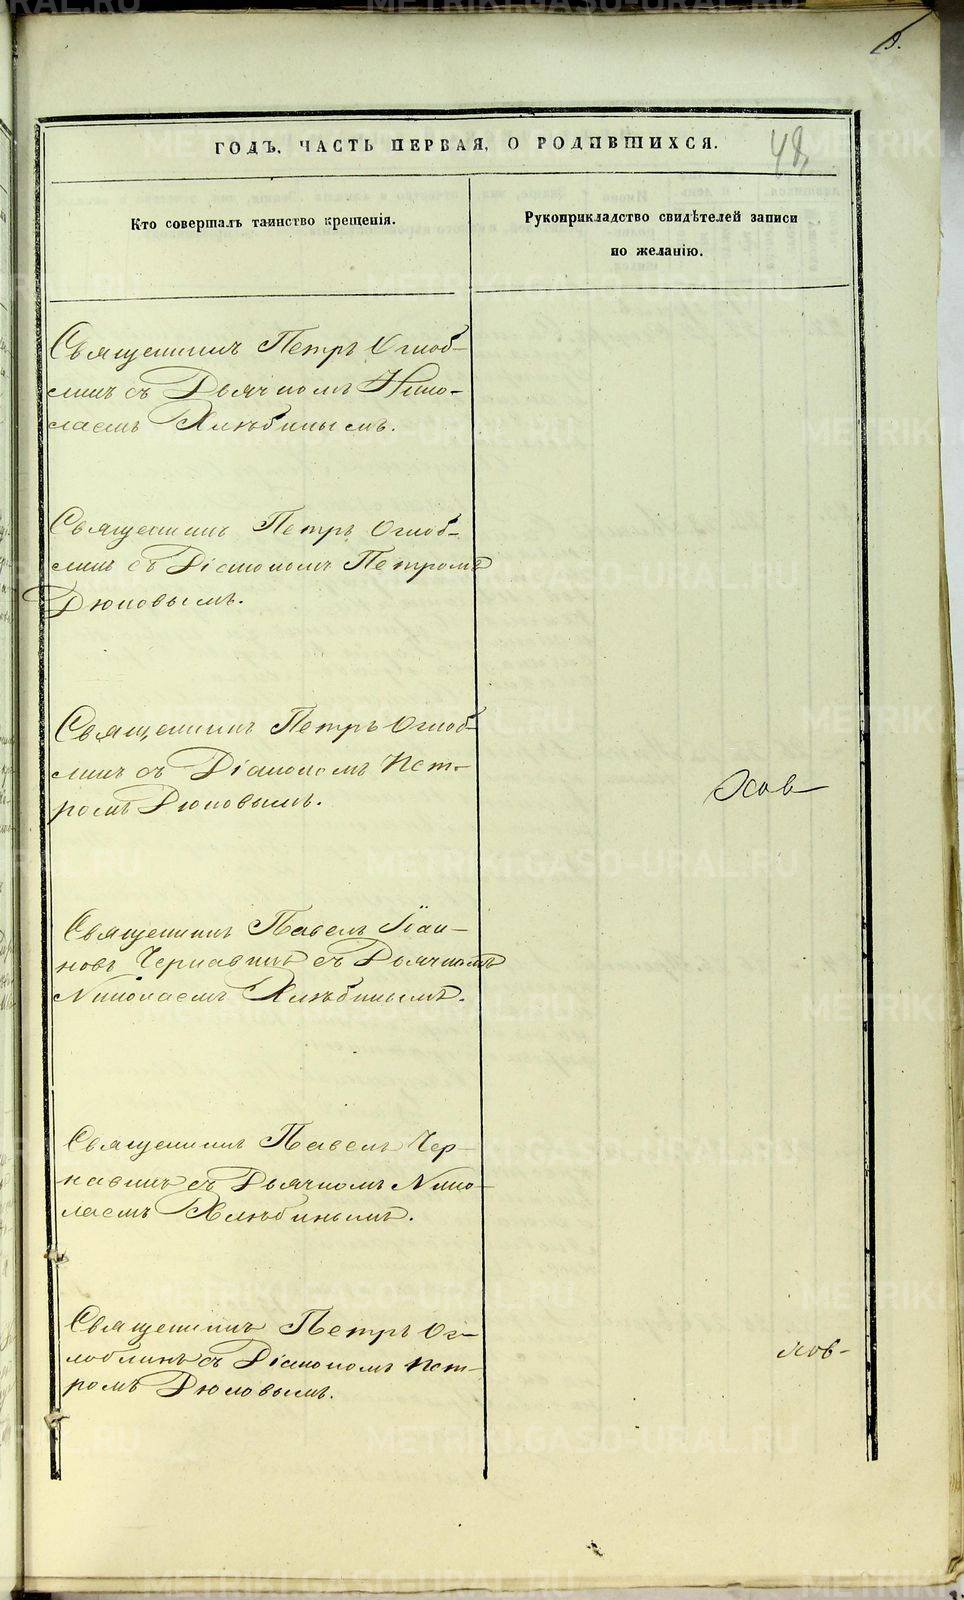 8.
ГОДЪ, ЧАСТЬ ПЕРВАЯ, О РОДИВШИХСЯ.
48
Кто совершалъ таинство крещенія.
Рукоприкладство свидѣтелей записи
по желанію.
Священникъ Петръ Оглоб-
линъ съ Дьячкомъ Нико-
лаемъ Хлѣбинымъ.
Священникъ Петръ Оглоб-
линъ съ Діакономъ Петромъ
Дюковымъ.
Священникъ Петръ Оглоб-
линъ съ Діакономъ Пет-
ромъ Дюковымъ.
Священникъ Павелъ Іоан-
новъ Чернавинъ съ Дьячкомъ
Николаемъ Хлѣбинымъ.
Священникъ Павелъ Чер-
навинъ съ Дьячкомъ Нико-
лаемъ Хлѣбинымъ.
Священникъ Петръ Ог-
лоблинъ съ Діакономъ Пет-
ромъ Дюковымъ.
METRIKI.GASO-URAL.RU